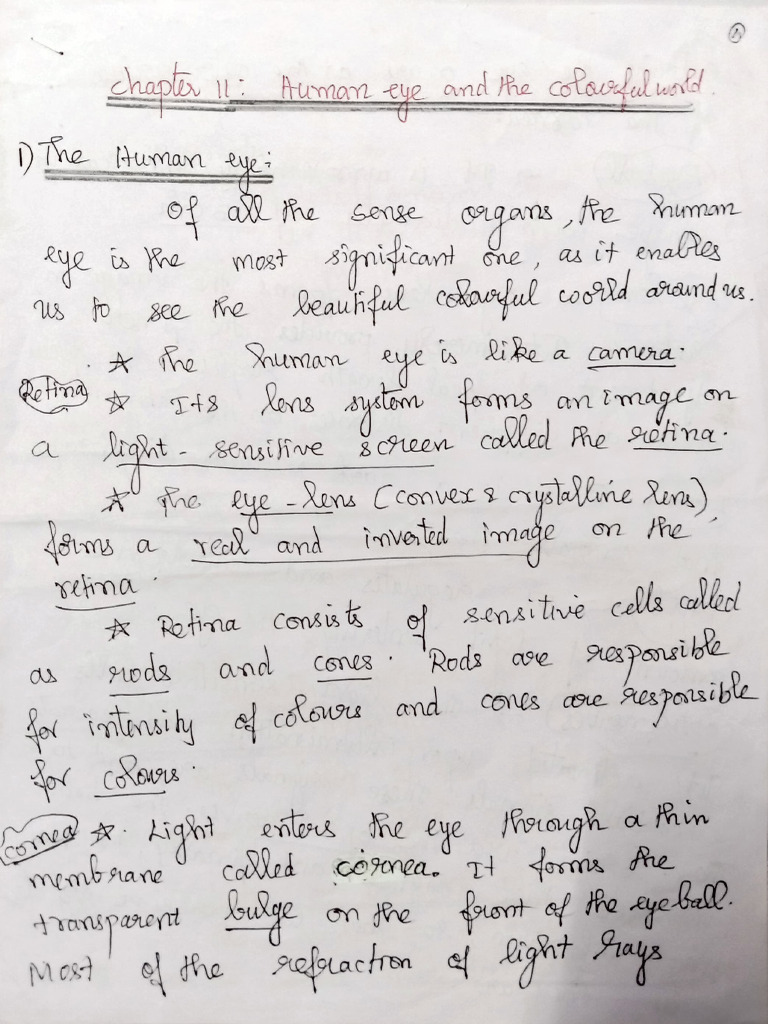 1
Chapter 11: Human eye and the colourful world.
1) The Human eye:
Of all the sense organs, the human
eye is the most significant one, as it enables
us to see the beautiful colourful world around us.
☆ The human eye is like a camera.
Retina ☆ Its lens system forms an image on
a light-sensitive screen called the retina.
☆ The eye-lens (convex & crystalline lens)
forms a real and inverted image on the
retina.
☆ Retina consists of sensitive cells called
as rods and cones. Rods are responsible
for intensity of colours and cones are responsible
for colours.
cornea ☆. Light enters the eye through a thin
membrane called cornea. It forms the
transparent bulge on the front of the eyeball.
Most of the refraction of light rays